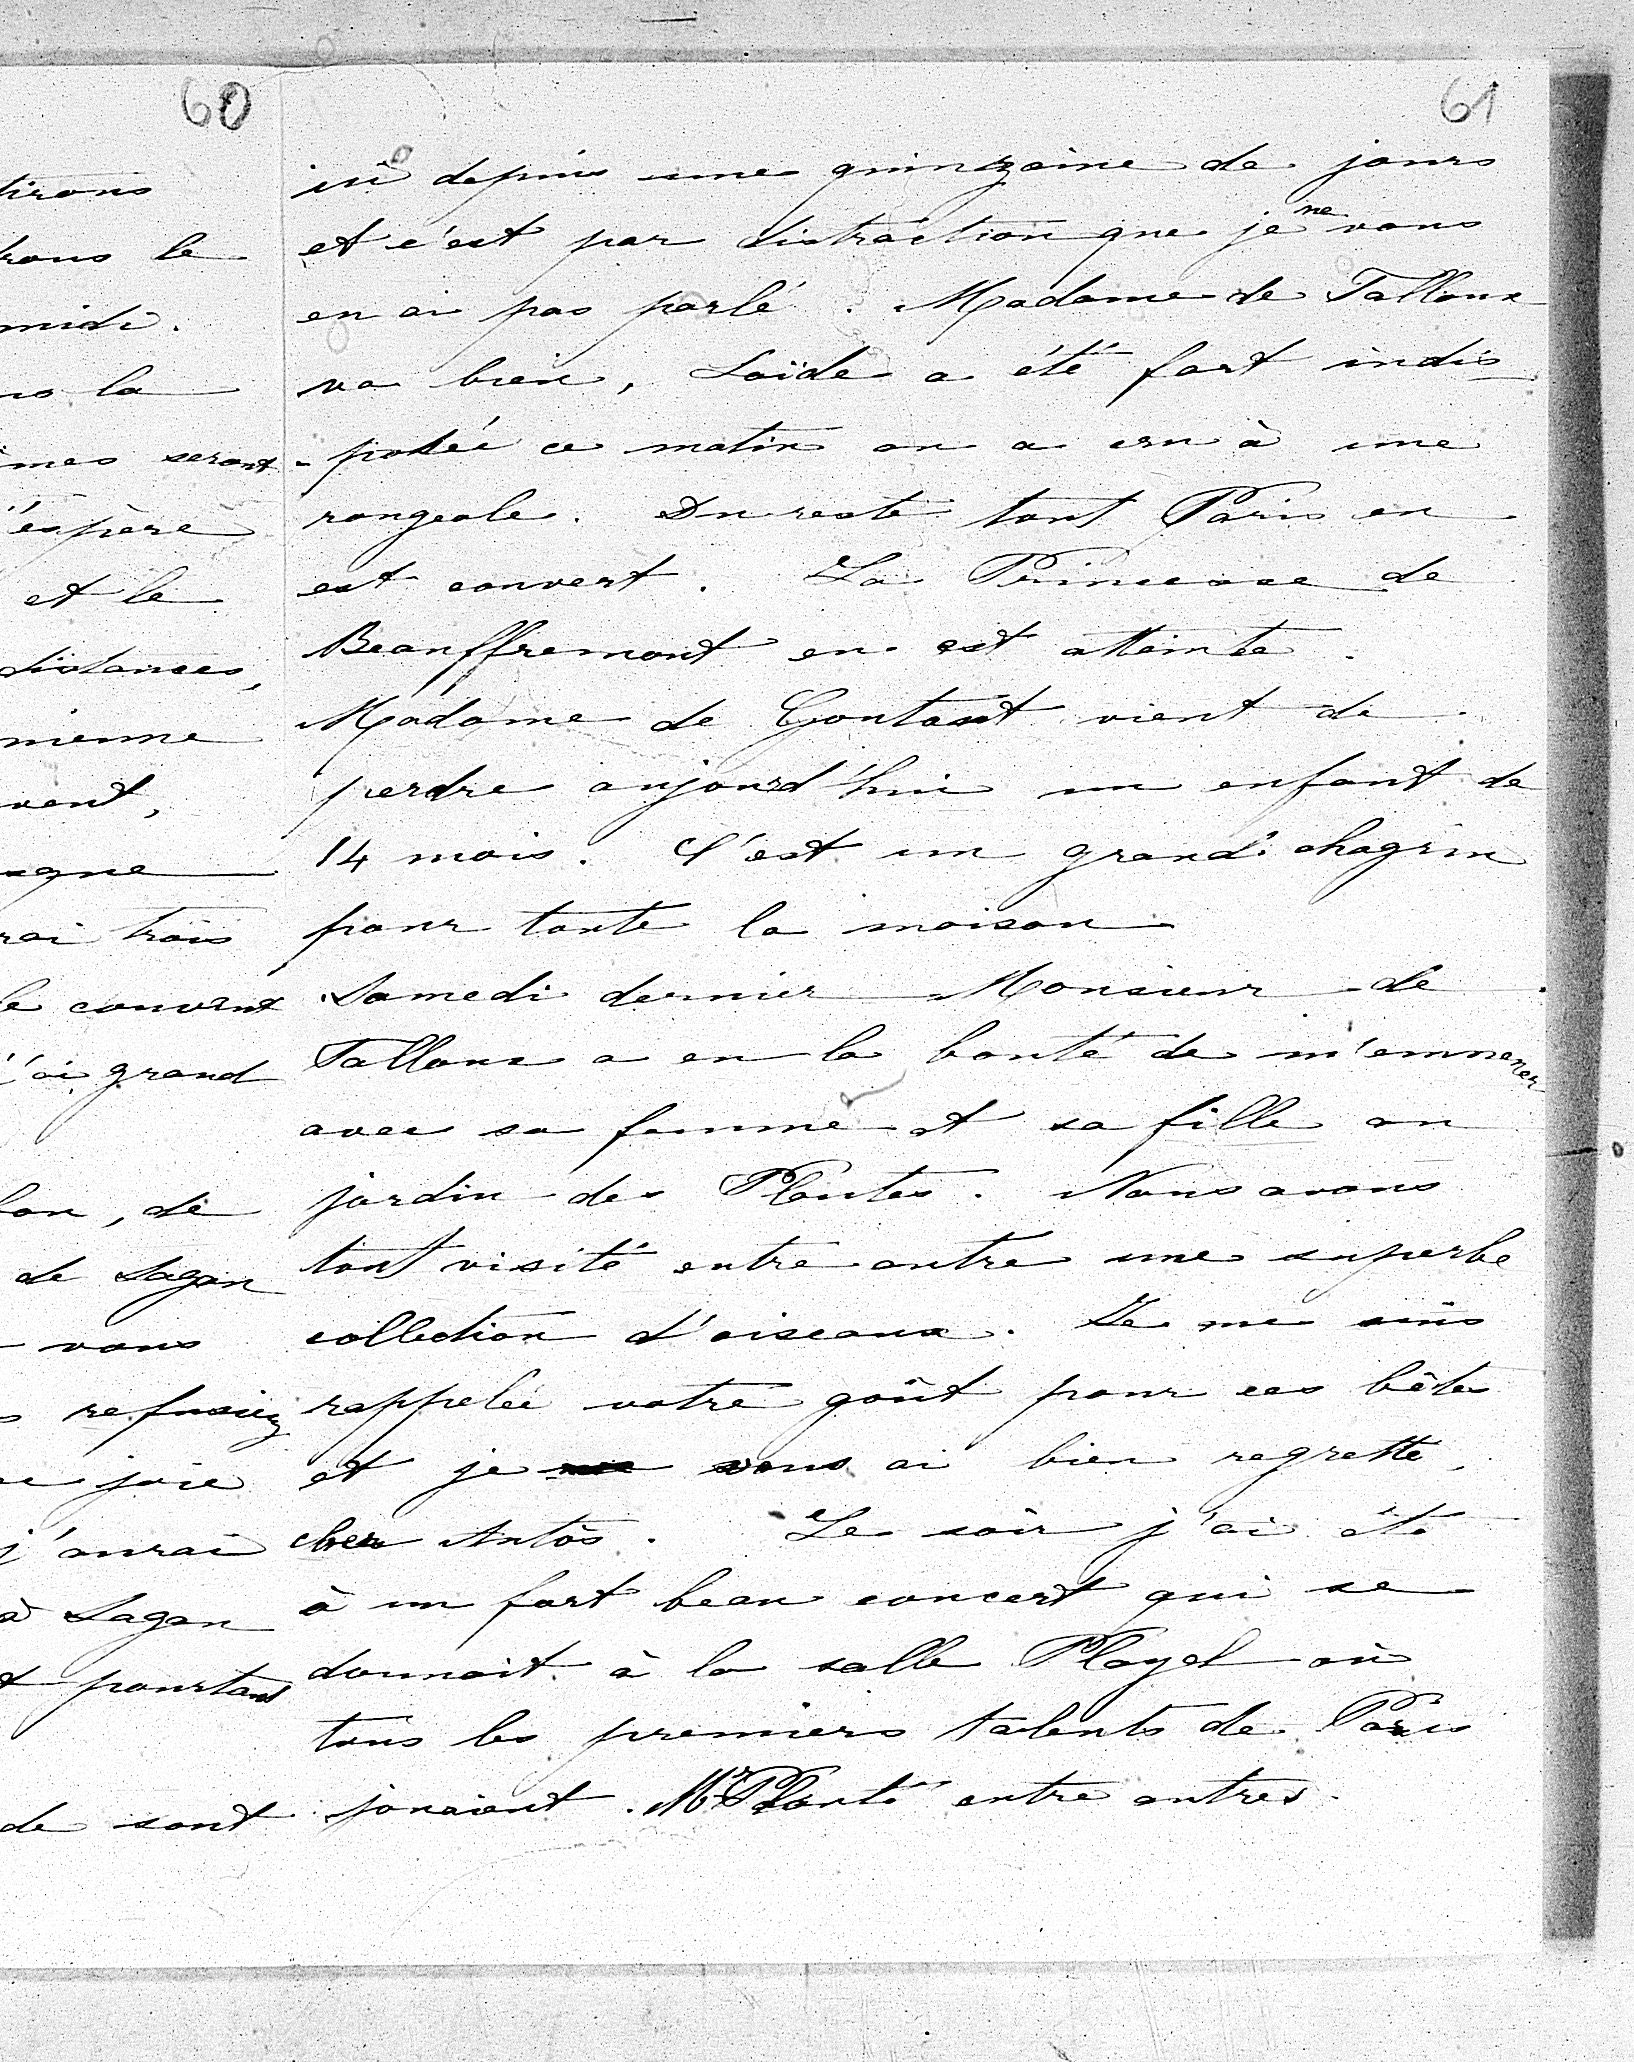 60
tirons
rons le
midi.
la
mes seront
'espère
et le
distances,
mienne
vent,
agne
rai trois
le couvent
j'ai grand
lon, de
de Sagan
vous
refusiez
joie
j'aurai
à Sagan
pourtant
de sont
61
ici depuis une quinzaine de jours
et c'est par distraction que je ne vous
en ai pas parlé. Madame de Talloux
va bien, Loïde a été fort indis
-posée ce matin on a cru à une
rougeole. Du reste tout Paris en
est couvert. La Princesse de
Beauffremont en est atteinte.
Madame de Gontaut vient de
perdre aujourd'hui un enfant de
14 mois. C'est un grand chagrin
pour toute la maison
Samedi dernier Monsieur de
Talloux a eu la bonté de m'emmener
avec sa femme et sa fille au
jardin des Plantes. Nous avons
tout visité entre autre une superbe
collection d'oiseaux. Je me suis
rappelée votre goût pour ces bêtes
et je vous ai bien regretté,
cher Antos. Le soir j'ai été
à un fort beau concert qui se
donnait à la salle Playel où
tous les premiers talents de Paris
jouaient. Mr Planté entre autres.